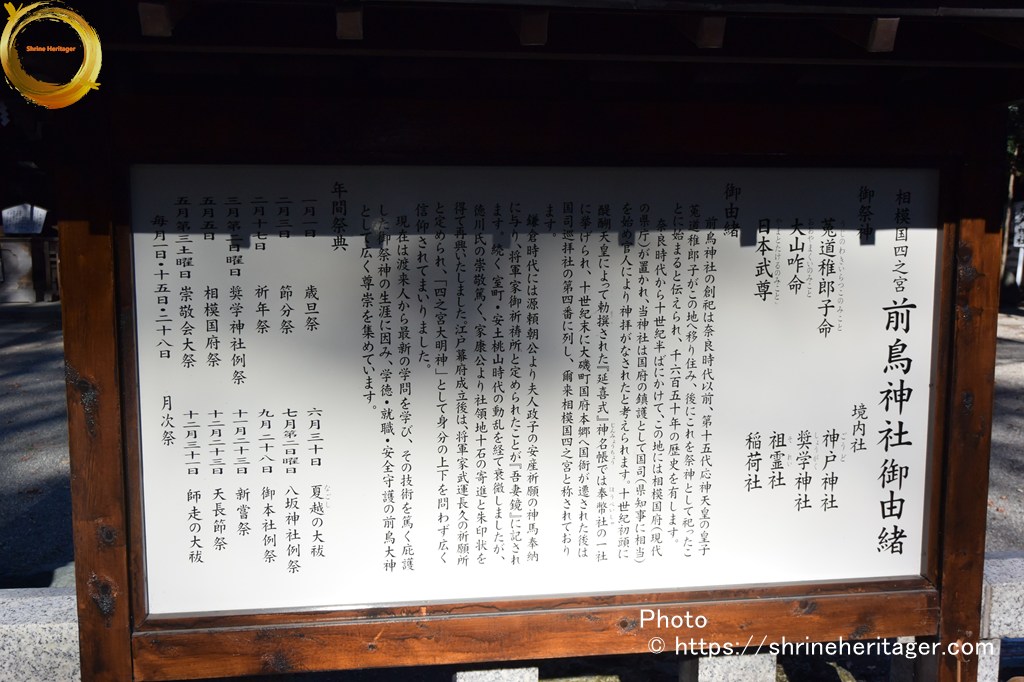 Shrine Heritager
相模国四之宮 前鳥神社御由緒
御祭神
菟道稚郎子命
大山咋命
日本武尊
境内社
神戸神社
奨学神社
祖霊社
稲荷社
御由緒
前鳥神社の創祀は奈良時代以前、第十五代応神天皇の皇子
菟道稚郎子がこの地へ移り住み、後にこれを祭神として祀ったこ
とに始まると伝えられ、千六百五十年の歴史を有します。
奈良時代から十世紀半ばにかけて、この地には相模国府(現代
の県庁)が置かれ、当神社は国府の鎮護として国司(県知事に相当)
を始め官人により神拝がなされたと考えられます。十世紀初頭に
醍醐天皇によって勅撰された『延喜式』神名帳では奉幣社の一社
に挙げられ、十世紀末に大磯町国府本郷へ国衙が遷された後は
国司巡拝社の第四番に列し、爾来相模国四之宮と称されており
ます。
鎌倉時代には源頼朝公より夫人政子の安産祈願の神馬奉納
に与り、将軍家御祈祷所と定められたことが『吾妻鏡』に記され
ます。続く室町・安土桃山時代の動乱を経て衰微しましたが、
徳川氏の崇敬篤く、家康公より社領地十石の寄進と朱印状を
得て再興いたしました。江戸幕府成立後は、将軍家武運長久の祈願所
と定められ、「四之宮大明神」として身分の上下を問わず広く
信仰されてまいりました。
現在は渡来人から最新の学問を学び、その技術を篤く庇護
した御祭神の生涯に因み、学徳・就職・安全守護の前鳥大神
として広く尊崇を集めています。
年間祭典
一月一日 歳旦祭
二月三日 節分祭
二月十七日 祈年祭
三月第二日曜日 奨学神社例祭
五月五日 相模国府祭
五月第三土曜日 崇敬会大祭
毎月一日・十五日・二十八日 月次祭
六月三十日 夏越の大祓
七月第二日曜日 八坂神社例祭
九月二十八日 御本社例祭
十一月二十三日 新嘗祭
十二月二十三日 天長節祭
十二月三十一日 師走の大祓
Photo
© https://shrineheritager.com